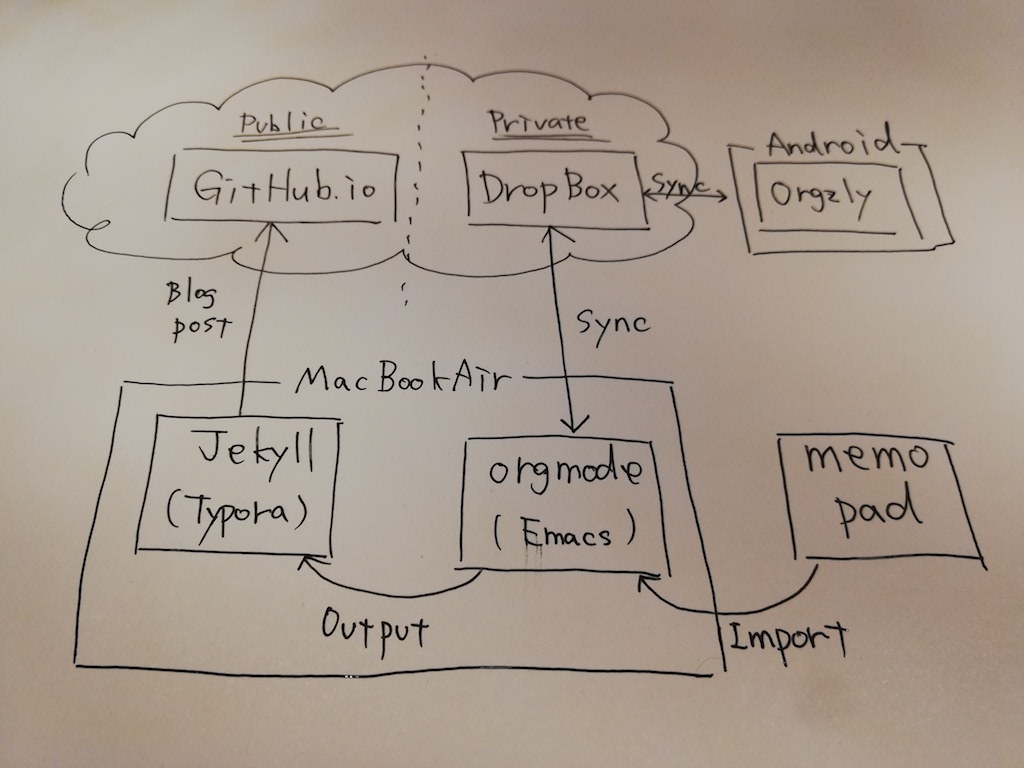 Public
Private
GitHub.io
DropBox
Sync
Android
Orgzly
Blog
post
Sync
MacBookAir
Jekyll
(Typora)
orgmode
(Emacs)
memo
pad
Output
Import